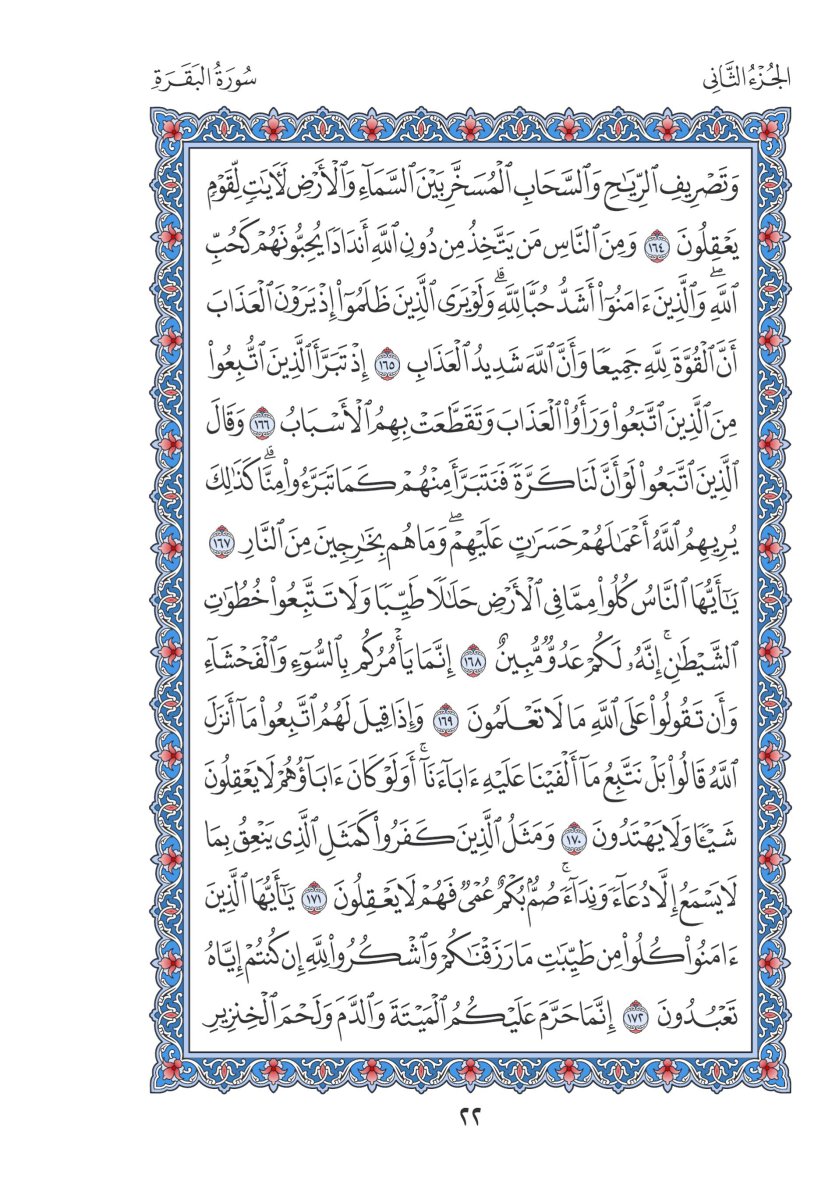 الجُزْءُ الثَّانِى
سُورَةُ البَقَرَةِ
وَتَصْرِيفِ ٱلرِّيَٰحِ وَٱلسَّحَابِ ٱلْمُسَخَّرِ بَيْنَ ٱلسَّمَآءِ وَٱلْأَرْضِ لَأٓيَٰتٍ لِّقَوْمٍ
يَعْقِلُونَ ١٦٤ وَمِنَ ٱلنَّاسِ مَن يَتَّخِذُ مِن دُونِ ٱللَّهِ أَندَادًا يُحِبُّونَهُمْ كَحُبِّ
ٱللَّهِۖ وَٱلَّذِينَ ءَامَنُوٓا۟ أَشَدُّ حُبًّا لِّلَّهِۗ وَلَوْ يَرَى ٱلَّذِينَ ظَلَمُوٓا۟ إِذْ يَرَوْنَ ٱلْعَذَابَ
أَنَّ ٱلْقُوَّةَ لِلَّهِ جَمِيعًا وَأَنَّ ٱللَّهَ شَدِيدُ ٱلْعَذَابِ ١٦٥ إِذْ تَبَرَّأَ ٱلَّذِينَ ٱتُّبِعُوا۟
مِنَ ٱلَّذِينَ ٱتَّبَعُوا۟ وَرَأَوُا۟ ٱلْعَذَابَ وَتَقَطَّعَتْ بِهِمُ ٱلْأَسْبَابُ ١٦٦ وَقَالَ
ٱلَّذِينَ ٱتَّبَعُوا۟ لَوْ أَنَّ لَنَا كَرَّةً فَنَتَبَرَّأَ مِنْهُمْ كَمَا تَبَرَّءُوا۟ مِنَّاۗ كَذَٰلِكَ
يُرِيهِمُ ٱللَّهُ أَعْمَٰلَهُمْ حَسَرَٰتٍ عَلَيْهِمْۖ وَمَا هُم بِخَٰرِجِينَ مِنَ ٱلنَّارِ ١٦٧
يَٰٓأَيُّهَا ٱلنَّاسُ كُلُوا۟ مِمَّا فِى ٱلْأَرْضِ حَلَٰلًا طَيِّبًا وَلَا تَتَّبِعُوا۟ خُطُوَٰتِ
ٱلشَّيْطَٰنِۚ إِنَّهُۥ لَكُمْ عَدُوٌّ مُّبِينٌ ١٦٨ إِنَّمَا يَأْمُرُكُم بِٱلسُّوٓءِ وَٱلْفَحْشَآءِ
وَأَن تَقُولُوا۟ عَلَى ٱللَّهِ مَا لَا تَعْلَمُونَ ١٦٩ وَإِذَا قِيلَ لَهُمُ ٱتَّبِعُوا۟ مَآ أَنزَلَ
ٱللَّهُ قَالُوا۟ بَلْ نَتَّبِعُ مَآ أَلْفَيْنَا عَلَيْهِ ءَابَآءَنَآۚ أَوَلَوْ كَانَ ءَابَآؤُهُمْ لَا يَعْقِلُونَ
شَيْـًٔا وَلَا يَهْتَدُونَ ١٧٠ وَمَثَلُ ٱلَّذِينَ كَفَرُوا۟ كَمَثَلِ ٱلَّذِى يَنْعِقُ بِمَا
لَا يَسْمَعُ إِلَّا دُعَآءً وَنِدَآءًۚ صُمٌّۢ بُكْمٌ عُمْىٌ فَهُمْ لَا يَعْقِلُونَ ١٧١ يَٰٓأَيُّهَا ٱلَّذِينَ
ءَامَنُوا۟ كُلُوا۟ مِن طَيِّبَٰتِ مَا رَزَقْنَٰكُمْ وَٱشْكُرُوا۟ لِلَّهِ إِن كُنتُمْ إِيَّاهُ
تَعْبُدُونَ ١٧٢ إِنَّمَا حَرَّمَ عَلَيْكُمُ ٱلْمَيْتَةَ وَٱلدَّمَ وَلَحْمَ ٱلْخِنزِيرِ
٢٢